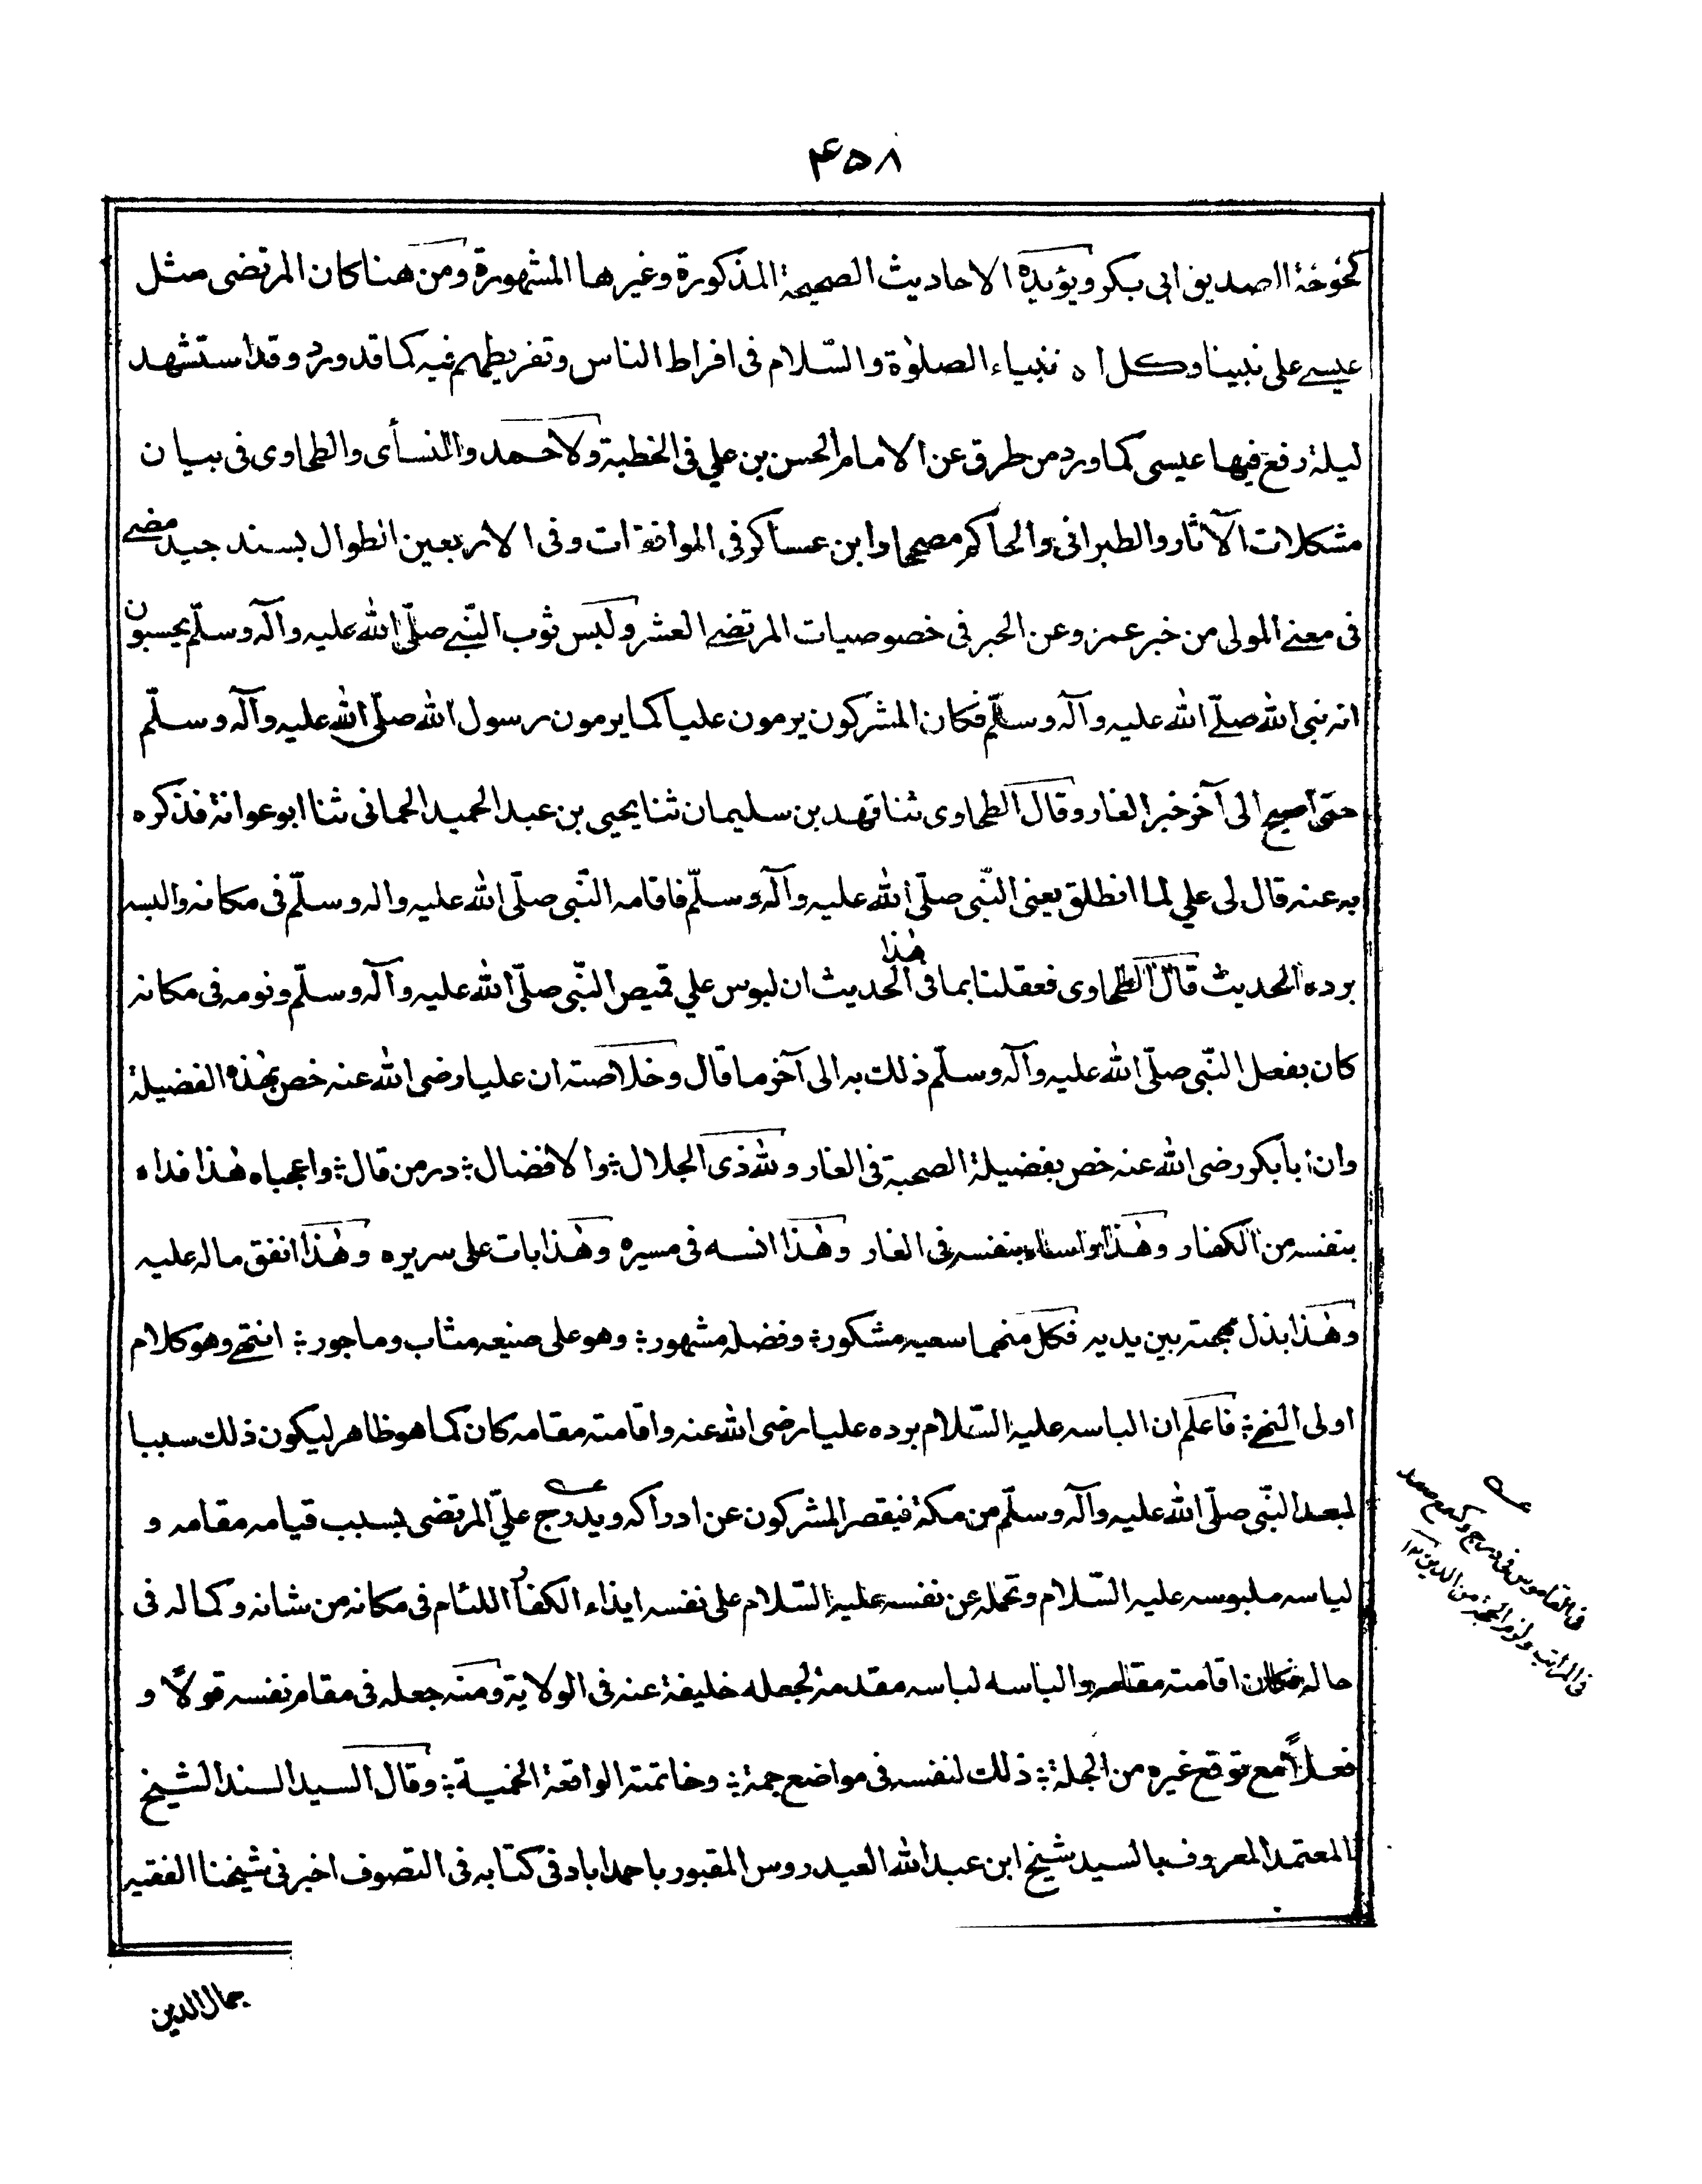 ۴۵۸
كخوخة الصديق ابى بكر ويؤيده الاحاديث الصحيحة المذكورة وغيرها المشهورة ومن هنا كان المرتضى مثل
عيسے على نبينا وكل الانبياء الصلوٰة والسّلام فى افراط الناس وتفريطهم فيه كما قد ورد وقد استشهد
ليلة رفع فيها عيسى كما ورد من طرق عن الامام الحسن بن علي فى الخطبة ولاحمد والنسأى والطحاوى فى بيان
مشكلات الآثار والطبرانى والحاكم مصححا وابن عساكر فى الموافقات وفى الاربعين الطوال بسند جيد مضے
فى معنے المولى من خبر عمر وعن الحبر فى خصوصيات المرتضے العشر ولبس ثوب النّبے صلّى الله عليه وآله وسلّم يحسبون
انه نبى الله صلّے الله عليه وآله وسلّم فكان المشركون يرمون عليا كما يرمون رسول الله صلّى الله عليه وآله وسلّم
حتى اصبح الى آخر خبر الغار وقال الطحاوى ثنا فهد بن سليمان ثنا يحيى بن عبد الحميد الحمانى ثنا ابو عوانة فذكره
به عنه قال لى علي لما انطلق يعنى النّبى صلّى الله عليه وآله وسلّم فاقامه النّبى صلّى الله عليه واله وسلّم فى مكانه والبسه
برده الحديث قال الطحاوى فعقلنا بما فى هٰذا الحديث ان لبوس علي قميص النّبى صلّى الله عليه وآله وسلّم ونومه فى مكانه
كان بفعل النّبى صلّى الله عليه وآله وسلّم ذلك به الى آخر ما قال وخلاصته ان عليا رضى الله عنه خص بهٰذه الفضيلة
وان ابا بكر رضى الله عنه خص بفضيلة الصحبة فى الغار ولله ذى الجلال ؞ والافضال ؞ در من قال ؞ واعجباه هٰذا فداه
بنفسه من الكفار وهٰذا واساه بنفسه فى الغار وهٰذا انسه فى مسيره وهٰذا بات على سريره وهٰذا انفق ماله عليه
وهٰذا بذل مهجته بين يديه فكل منهما سعيه مشكور ؞ وفضله مشهور ؞ وهو على صنيعه مثاب وماجور ؞ انتهٰے وهو كلام
اولى النهے ؞ فاعلم ان الباسه عليه السّلام برده عليا رضى الله عنه واقامته مقامه كان كما هو ظاهر ليكون ذلك سببا
لبعد النّبى صلّى الله عليه وآله وسلّم من مكة فيقصر المشركون عن ادراكه ويدرج عليّ المرتضى بسبب قيامه مقامه و
لباسه ملبوسه عليه السّلام وتحمله عن نفسه عليه السّلام على نفسه ايذاء الكفار اللئام فى مكانه من شانه وكماله فى
حاله فكان اقامته مقامه والباسه لباسه مقدمة لجعله خليفة عنه فى الولاية ومنه جعله فى مقام نفسه قولاً و
فعلاً مع توقع غيره من الجلة ؞ ذلك لنفسه فى مواضع جمة ؞ وخاتمته الواقعة الخمية ؞ وقال السيد السند الشيخ
المعتمد المعروف بالسيد شيخ ابن عبد الله العيدروس المقبور باحمداباد فى كتابه فى التصوف اخبرنى شيخنا الفقير
عـه
فى القاموس فى درج وكسمع صعد
فى المراتب ولزم المحجة من الدين ١٢
جمال الدين